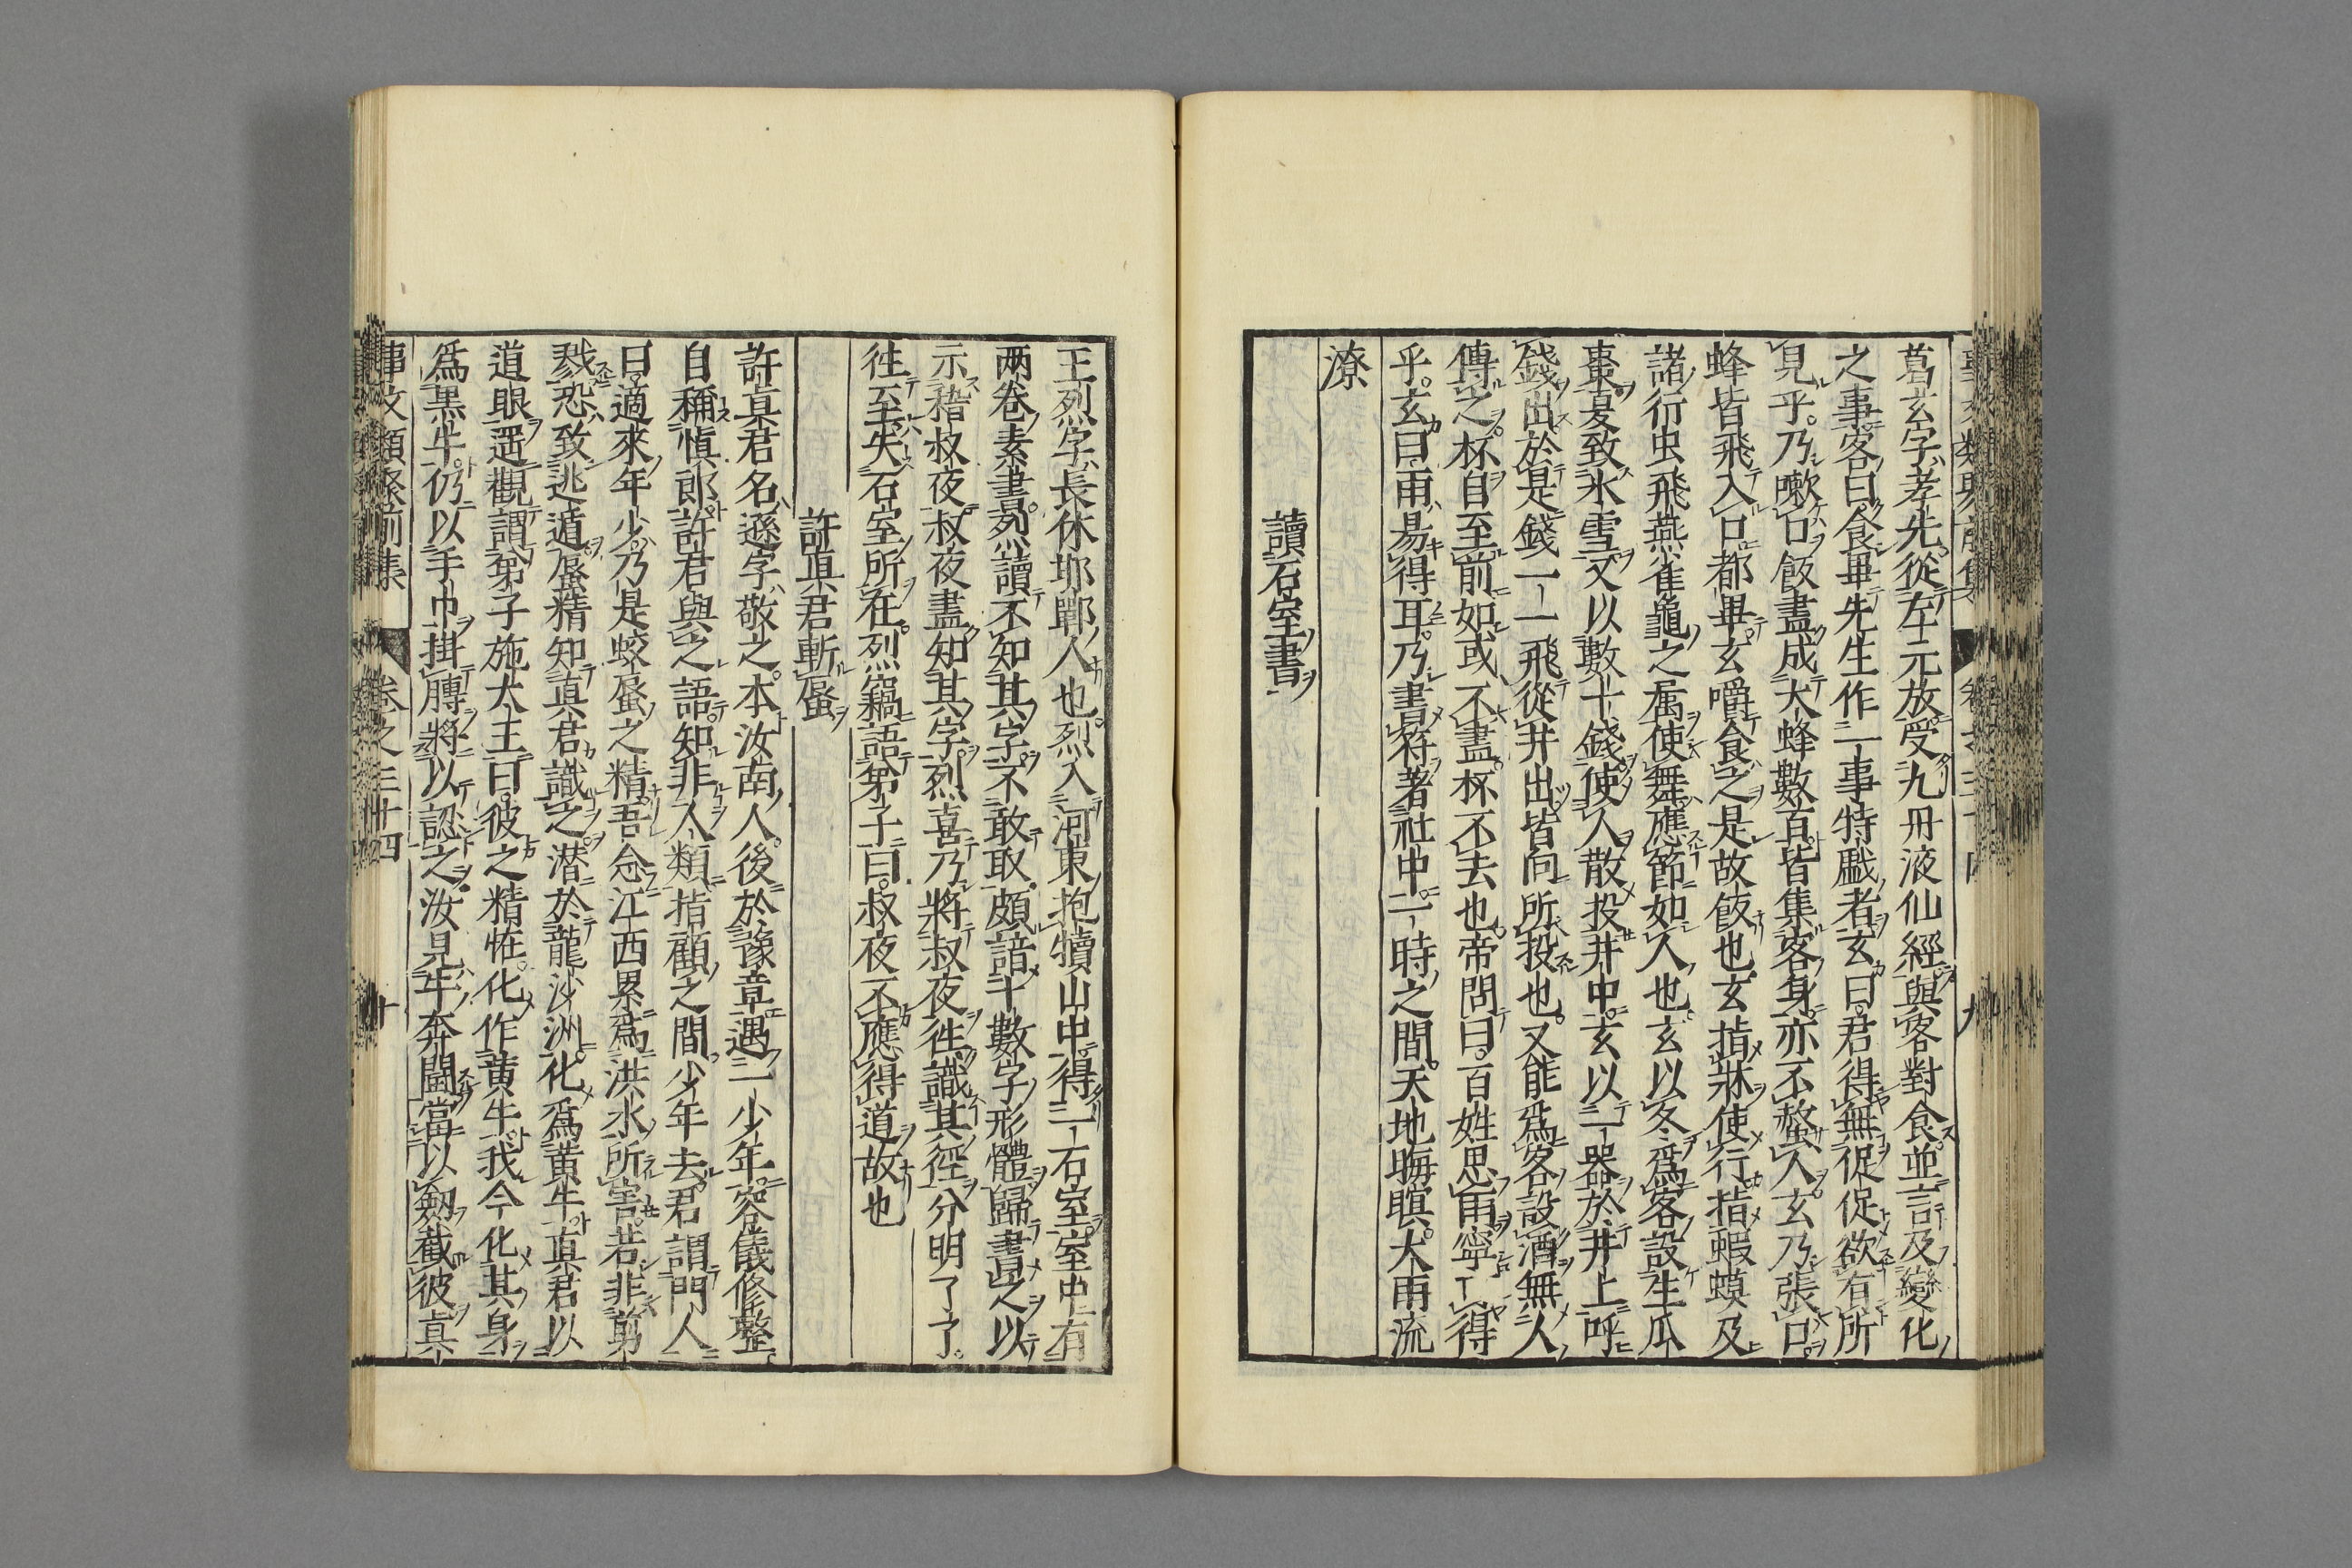 葛玄字孝先從左元放受九丹液仙經與客對食並言及變化
之事客曰食畢先生作一事特戲者玄曰君得無促促欲有所
見乎乃嗽口飯盡成大蜂數百皆集客身亦不螫人玄乃張口
蜂皆飛入口都畢玄嚼食之是故飯也玄指牀使行指蝦蟆及
諸行虫飛燕雀龜之属使舞應節如人也玄以冬爲客設生瓜
棗夏致氷雪又以數十錢使人散投井中玄以一器於井上呼
錢出於是錢一一飛從井出皆向所投也又能爲客設酒無人
傳之杯自至前如或不盡杯不去也帝問曰百姓思雨寧可得
乎玄曰雨易得耳乃書符著社中一時之間天地晦暝大雨流
潦
讀石室書
王烈字長休邯鄲人也烈入河東抱犢山中得一石室室中有
两卷素書烈讀不知其字不敢取頗諳十數字形體歸書之以
示稽叔夜叔夜盡知其字烈喜乃將叔夜徃識其徑分明了了
徃至失石室所在烈竊語弟子曰叔夜不應得道故也
許眞君斬蜃
許真君名遜字敬之本汝南人後於豫章遇一少年容儀修整
自稱慎郎許君與之語知非人類指顧之間少年去君謂門人
曰適來年少乃是蛟蜃之精吾念江西累爲洪水所害若非剪
戮恐致逃遁蜃精知真君識之潜於龍沙洲化爲黄牛真君以
道眼遥觀謂弟子施大王曰彼之精怪化作黄牛我今化其身
爲黒牛仍以手巾掛膊將以認之汝見牛奔鬪當以劔截彼真
事文類聚前集 卷之三十四 十